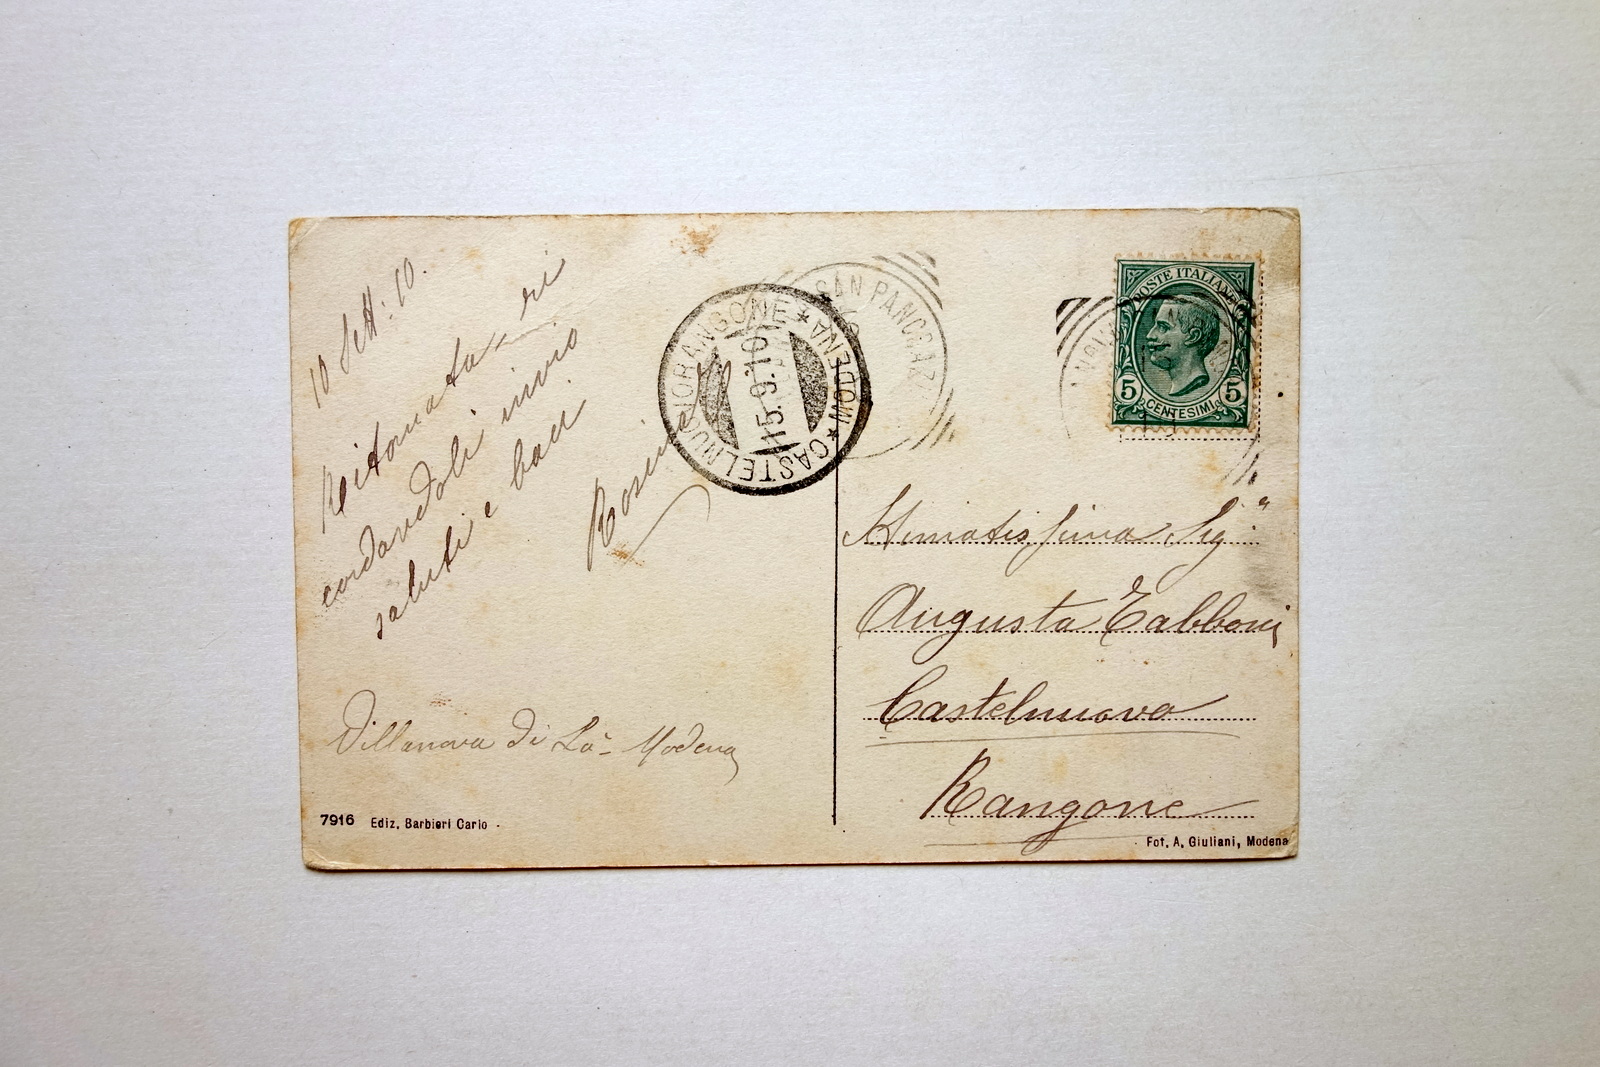 10 Sett: 10.
Reitornata ri
cordandoli invio
saluti e baci
Rosina
Villanova di
Modena
7916 Ediz. Barbieri Carlo
CASTELNUOVO RANGONE
★ MODENA ★
15.9.10
SAN PANCRAZ
POSTE ITALIANE
5 CENTESIMI 5
Stimatissima Sig.a
Augusta Tabboni
Castelnuovo
Rangone
Fot. A. Giuliani, Modena